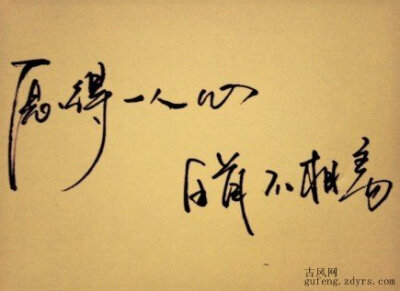 愿得一人心
白首不相离
古风网
gufeng.zdyrs.com